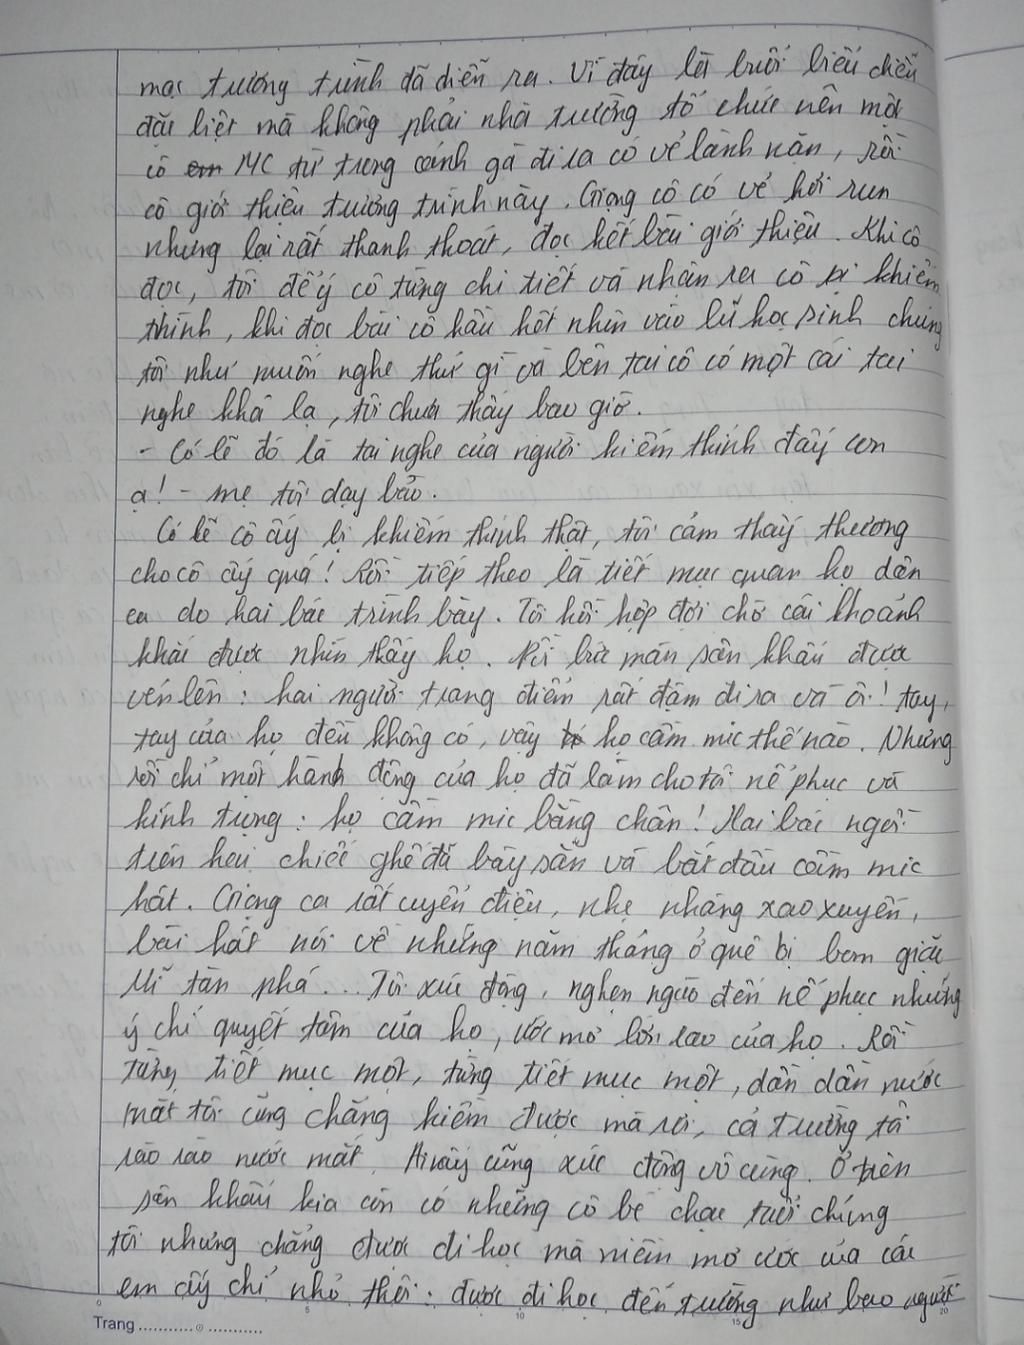 mạc trương trình đã diễn ra. Vì đây là buổi biểu diễn
đặc biệt mà không phải nhà trường tổ chức nên một
cô MC từ trong cánh gà đi ra có vẻ lành nặn, rồi
cô giới thiệu trương trình này. Giọng cô có vẻ hơi run
nhưng lại rất thanh thoát, đọc hết bài giới thiệu. Khi cô
đọc, tôi để ý cô từng chi tiết và nhận ra cô bị khiếm
thính, khi đọc bài cô hầu hết nhìn vào lũ học sinh chúng
tôi như muốn nghe thứ gì và bên tai cô có một cái tai
nghe khá lạ, tôi chưa thấy bao giờ.
- Có lẽ đó là tai nghe của người kiếm thính đấy con
ạ! - mẹ tôi dạy bảo.
Có lẽ cô ấy bị khiếm thính thật, tôi cảm thấy thương
cho cô ấy quá! Rồi tiếp theo là tiết mục quan họ dân
ca do hai bác trình bày. Tôi hồi hộp đợi chờ cái khoảnh
khắc được nhìn thấy họ. Rồi bức màn sân khấu được
vén lên: hai người trang điểm rất đậm đi ra và ôi! tay,
tay của họ đều không có, vậy họ cầm mic thế nào. Nhưng
rồi chỉ một hành động của họ đã làm cho tôi nể phục và
kính trọng: họ cầm mic bằng chân! Hai bác ngồi
trên hai chiếc ghế đã bày sẵn và bắt đầu cầm mic
hát. Giọng ca rất uyển điệu, nhẹ nhàng xao xuyến,
bài hát nói về những năm tháng ở quê bị bom giặc
Mĩ tàn phá... Tôi xúc động, nghẹn ngào đến nể phục những
ý chí quyết tâm của họ, ước mơ lớn lao của họ. Rồi
từng tiết mục một, từng tiết mục một, dần dần nước
mắt tôi cũng chẳng kiềm được mà rơi, cả trường tôi
rào rào nước mắt. Ai nấy cũng xúc động vô cùng. Ở trên
sân khấu kia còn có những cô bé chạc tuổi chúng
tôi nhưng chẳng được đi học mà niềm mơ ước của các
em ấy chỉ nhỏ thôi: được đi học, đến trường như bao người
Trang